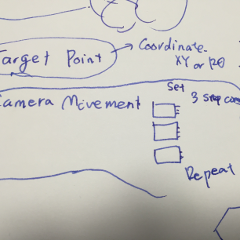 Target Point → Coordinate.
XY or
Camera Movement
Set
3 step
Repeat